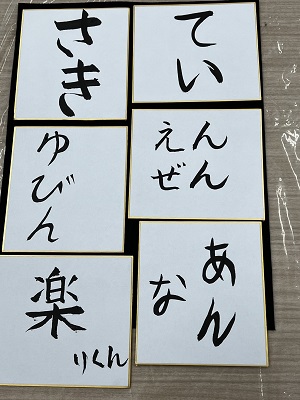 さき
てい
ゆびん
えん
ぜん
あん
な
楽
りくん